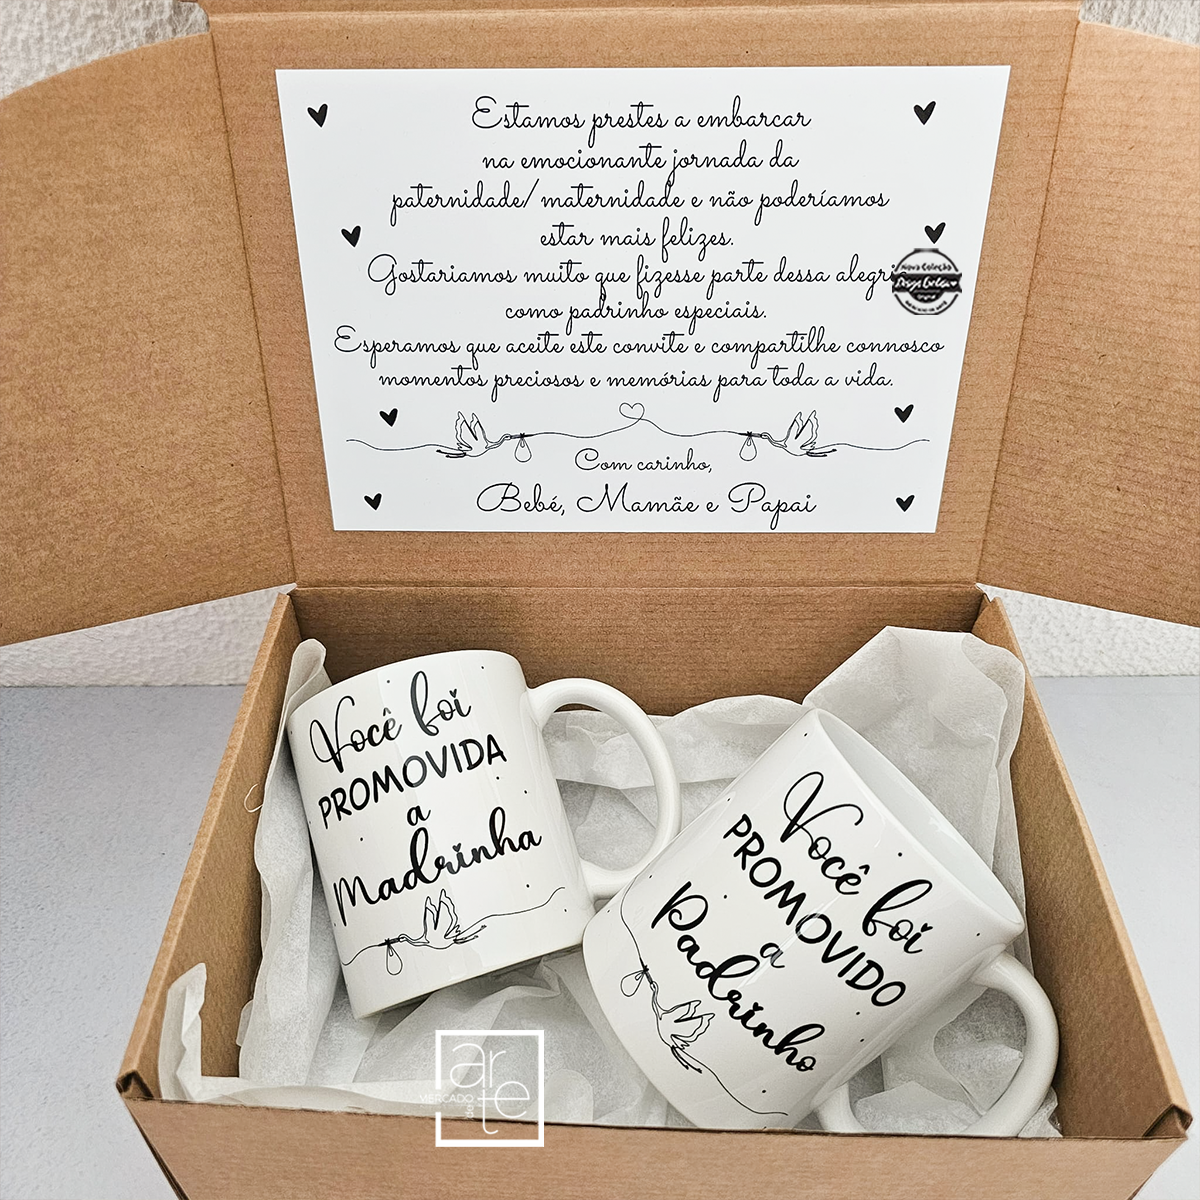 Estamos prestes a embarcar
na emocionante jornada da
paternidade/ maternidade e não poderíamos
estar mais felizes.
Gostariamos muito que fizesse parte dessa alegri
como padrinho especiais.
Esperamos que aceite este convite e compartilhe connosco
momentos preciosos e memórias para toda a vida.
Com carinho,
Bebé, Mamãe e Papai
Nova Coleção
Você foi
PROMOVIDA
a
Madrinha
Você foi
PROMOVIDO
a
Padrinho
MERCADO
de
arte